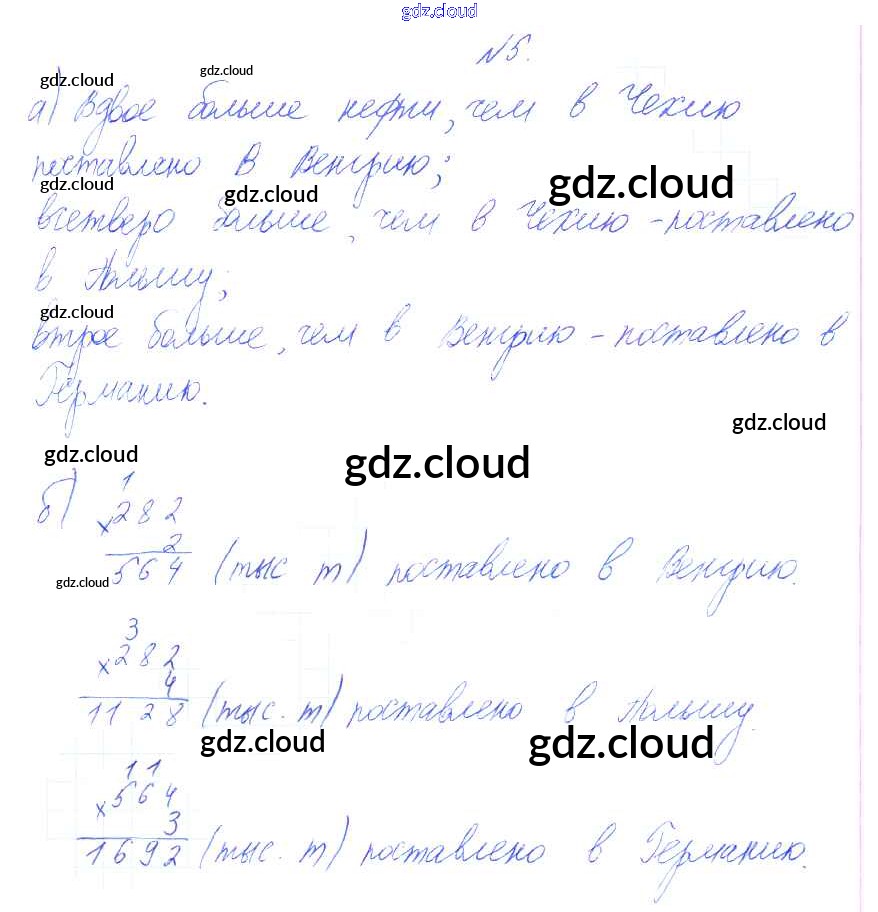 gdz.cloud
№5.
gdz.cloud gdz.cloud
а) Вдвое больше нефти, чем в Чехию
поставлено в Венгрию;
gdz.cloud gdz.cloud gdz.cloud
вчетверо больше, чем в Чехию - поставлено
в Польшу;
gdz.cloud
втрое больше, чем в Венгрию - поставлено в
Германию.
gdz.cloud
gdz.cloud gdz.cloud
1
б) ×282
2
564 (тыс т) поставлено в Венгрию.
gdz.cloud
3
×282
4
1128 (тыс. т) поставлено в Польшу.
gdz.cloud gdz.cloud
11
×564
3
1692 (тыс. т) поставлено в Германию.